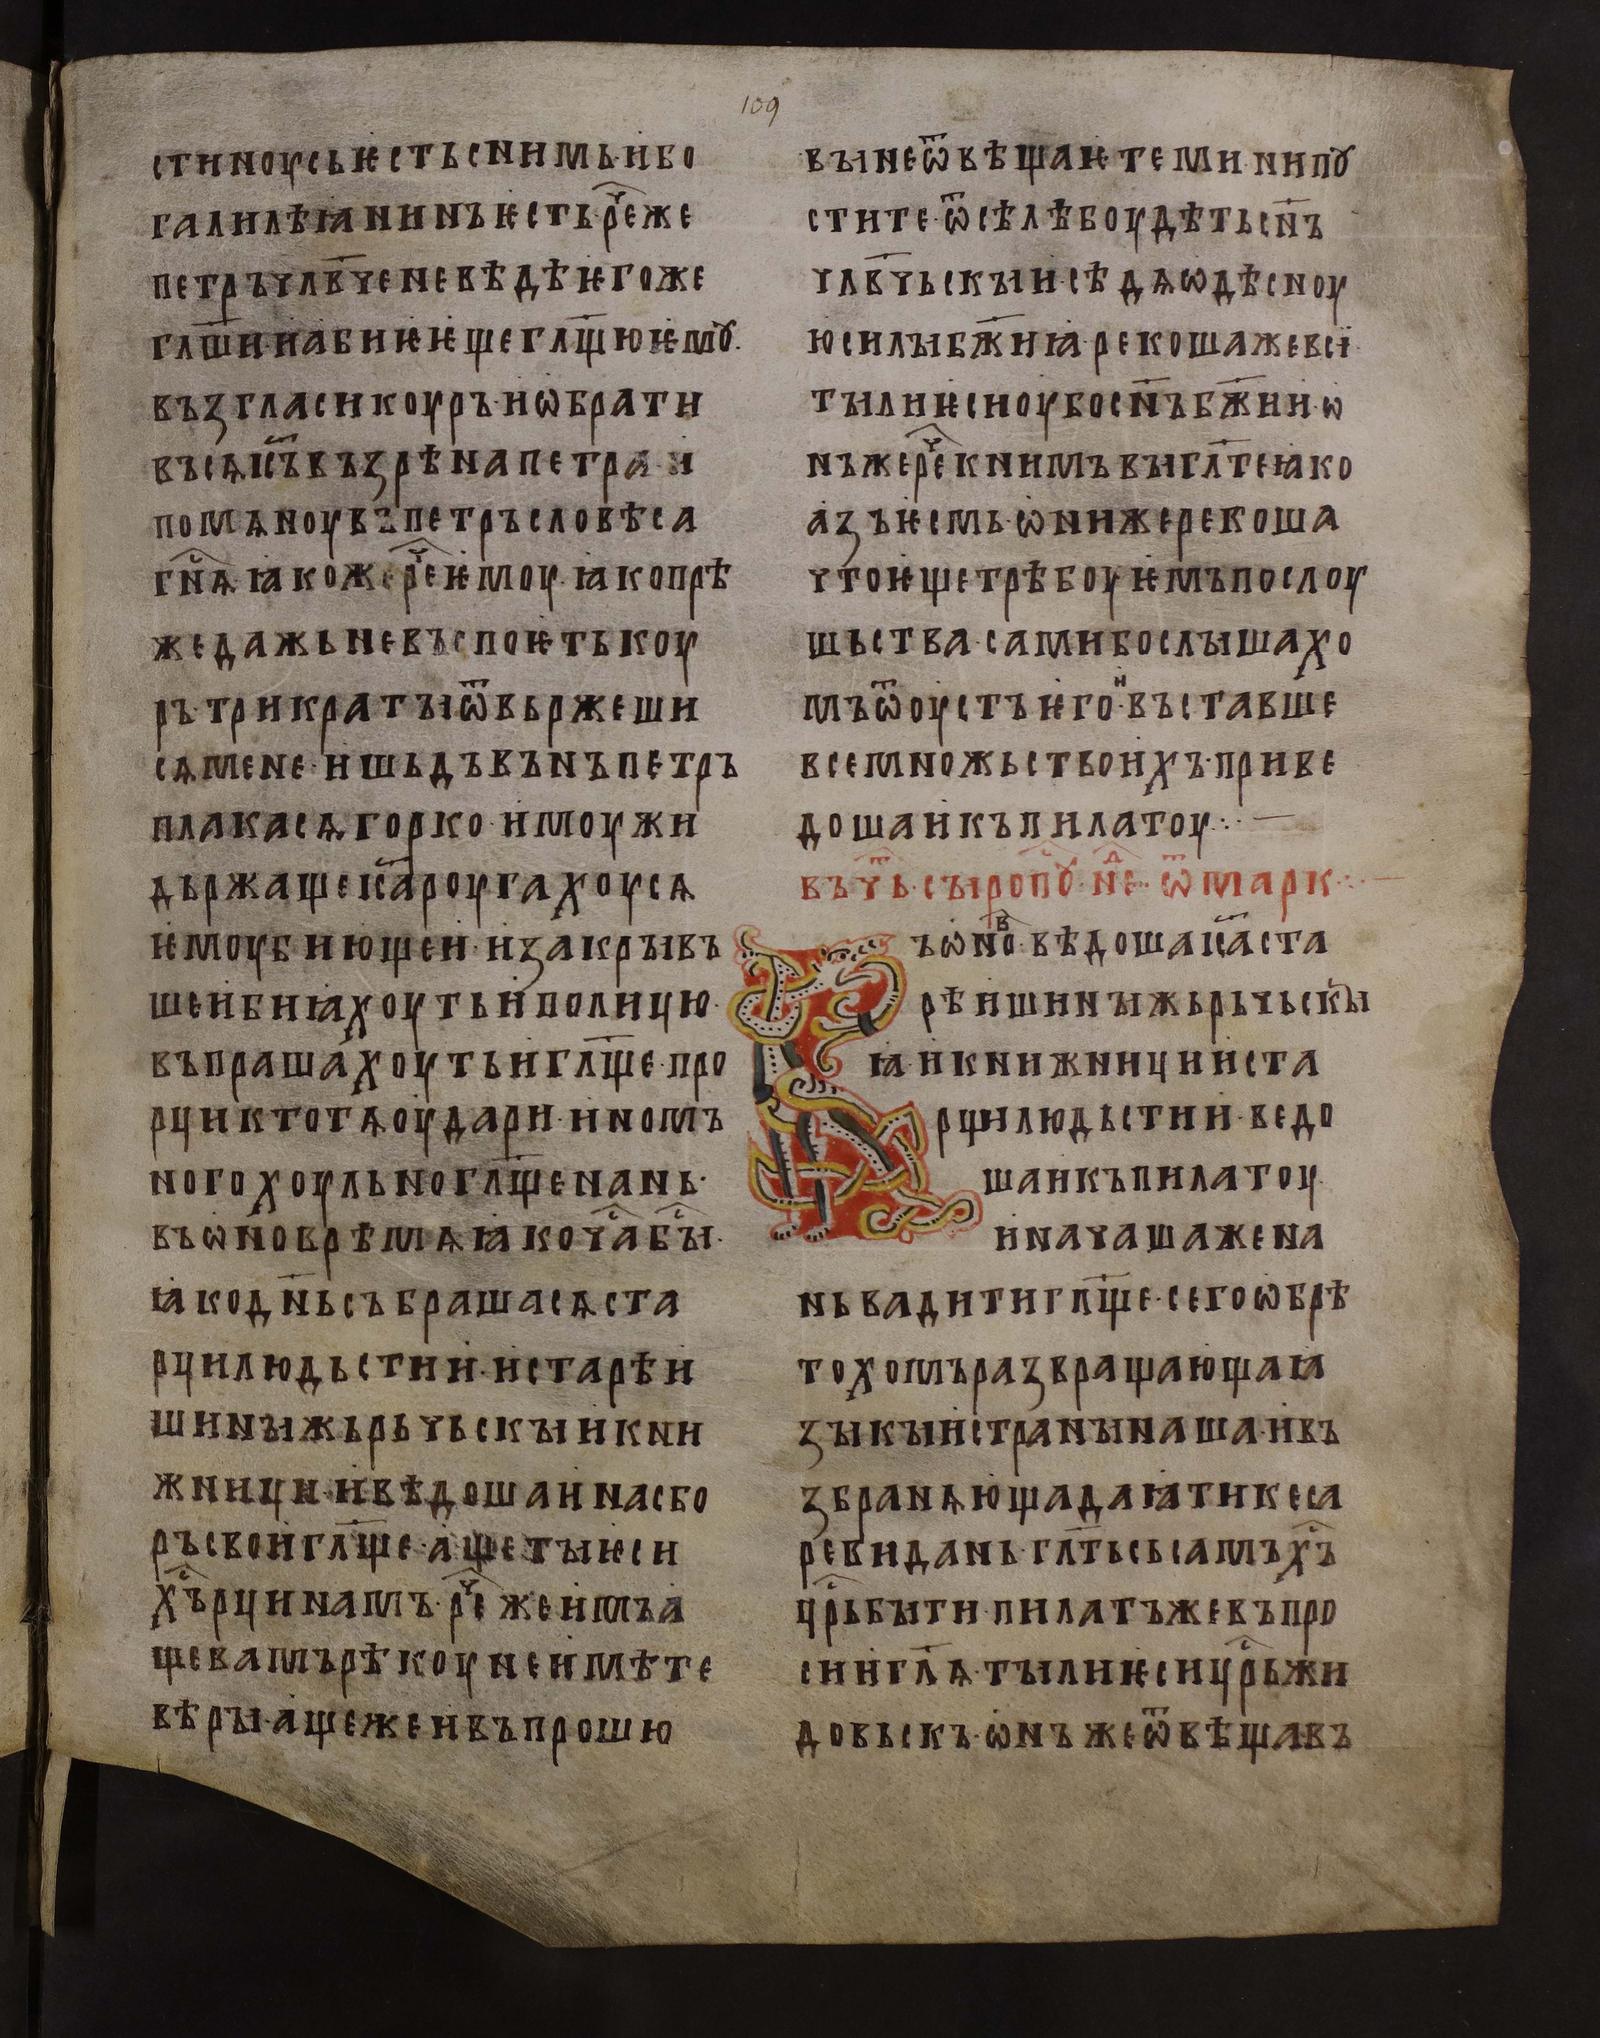 109
стиноусь ѥсть с нимь· и бо
галилѣꙗнинъ ѥсть· рⷱ҇е же
петръ чл҃вче не вѣдѣ ѥгоже
гл҃ши· и абиѥ ѥще гл҃щю ѥмꙋ·
възгласи коуръ· и ѡбрати
въсѧ і҃съ възрѣ на петра· и
помѧноу въ петръ словѣса
гн҃ѧ ꙗкоже рⷱ҇е ѥмоу· ꙗко прѣ
же дажь не въспоѥть коу
ръ· трикраты ѿвьржеши
сѧ мене· и шьдъ вънъ петръ
плака сѧ горко· и моужи
държаще і҃са роугахоу сѧ
ѥмоу биюще и· и закрывъ
ше и биꙗхоуть и по лицю·
въпрашахоуть и гл҃ще· про
рци кто тѧ оудари· и и номъ
ного хоульно гл҃ще нань·
въ ѡно врѣмѧ ꙗко чⷭ҇а бы·
ꙗко дн҃ь събраша сѧ ста
рци людьстии· и старѣи
шины жьрьчьскы и кни
жници· и вѣдоша и на сбо
ръ свои гл҃ще· аще ты ѥси
хⷭ҇ъ рци намъ· рⷱ҇е же имъ а
ще вамъ рѣкоу не имѣте
вѣры· аще же и въпрошю
вы не ѿвѣщаѥте ми· ни пꙋ
стите· ѿсѣлѣ боудѣть сн҃ъ
чл҃вчьскыи· сѣдѧ ѡдѣсноу
ю силы бж҃иꙗ· рекоша же всі
ты ли ѥси оубо сн҃ъ бж҃ии· ѡ
нъ же рⷱ҇е к нимъ вы гл҃те ꙗко
азъ ѥсмь· ѡни же рекоша
что ѥще трѣбоуѥмъ послоу
шьства· сами бо слышахо
мъ ѿ оустъ ѥго· и въставше
все множьство ихъ· приве
доша и къ пилатоу·:· —
въ чⷮь· сыропоⷭ҇у· неⷣ· ѿ марк·:· —
ъ ѡноⷡ· вѣдоша і҃са ста
рѣишины жьрьчьскы
ꙗ и книжници и ста
рци людьстии· ведо
ша и къ пилатоу·
и начаша же на
нь вадити гл҃ще· сего ѡбрѣ
тохомъ развращающа ꙗ
зыкы и страны наша· и въ
збранѧюща даꙗти кеса
реви дань· гл҃ть сь самъ хⷭ҇ъ
црⷭ҇ь быти· пилатъ же въпро
си и гл҃ѧ· ты ли ѥси црⷭ҇ь жи
довьскъ· ѡнъ же ѿвѣщавъ